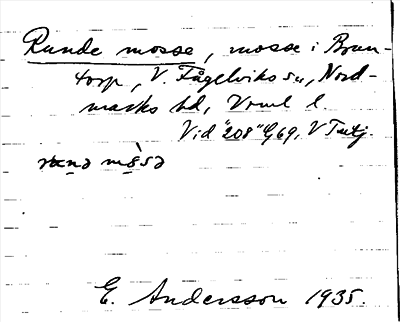 Runde mosse, mosse i Brun-
torp, V. Fågelviks sn, Nord-
marks hd, Vrml l.
Vid "208" G69, V
E. Andersson 1935.